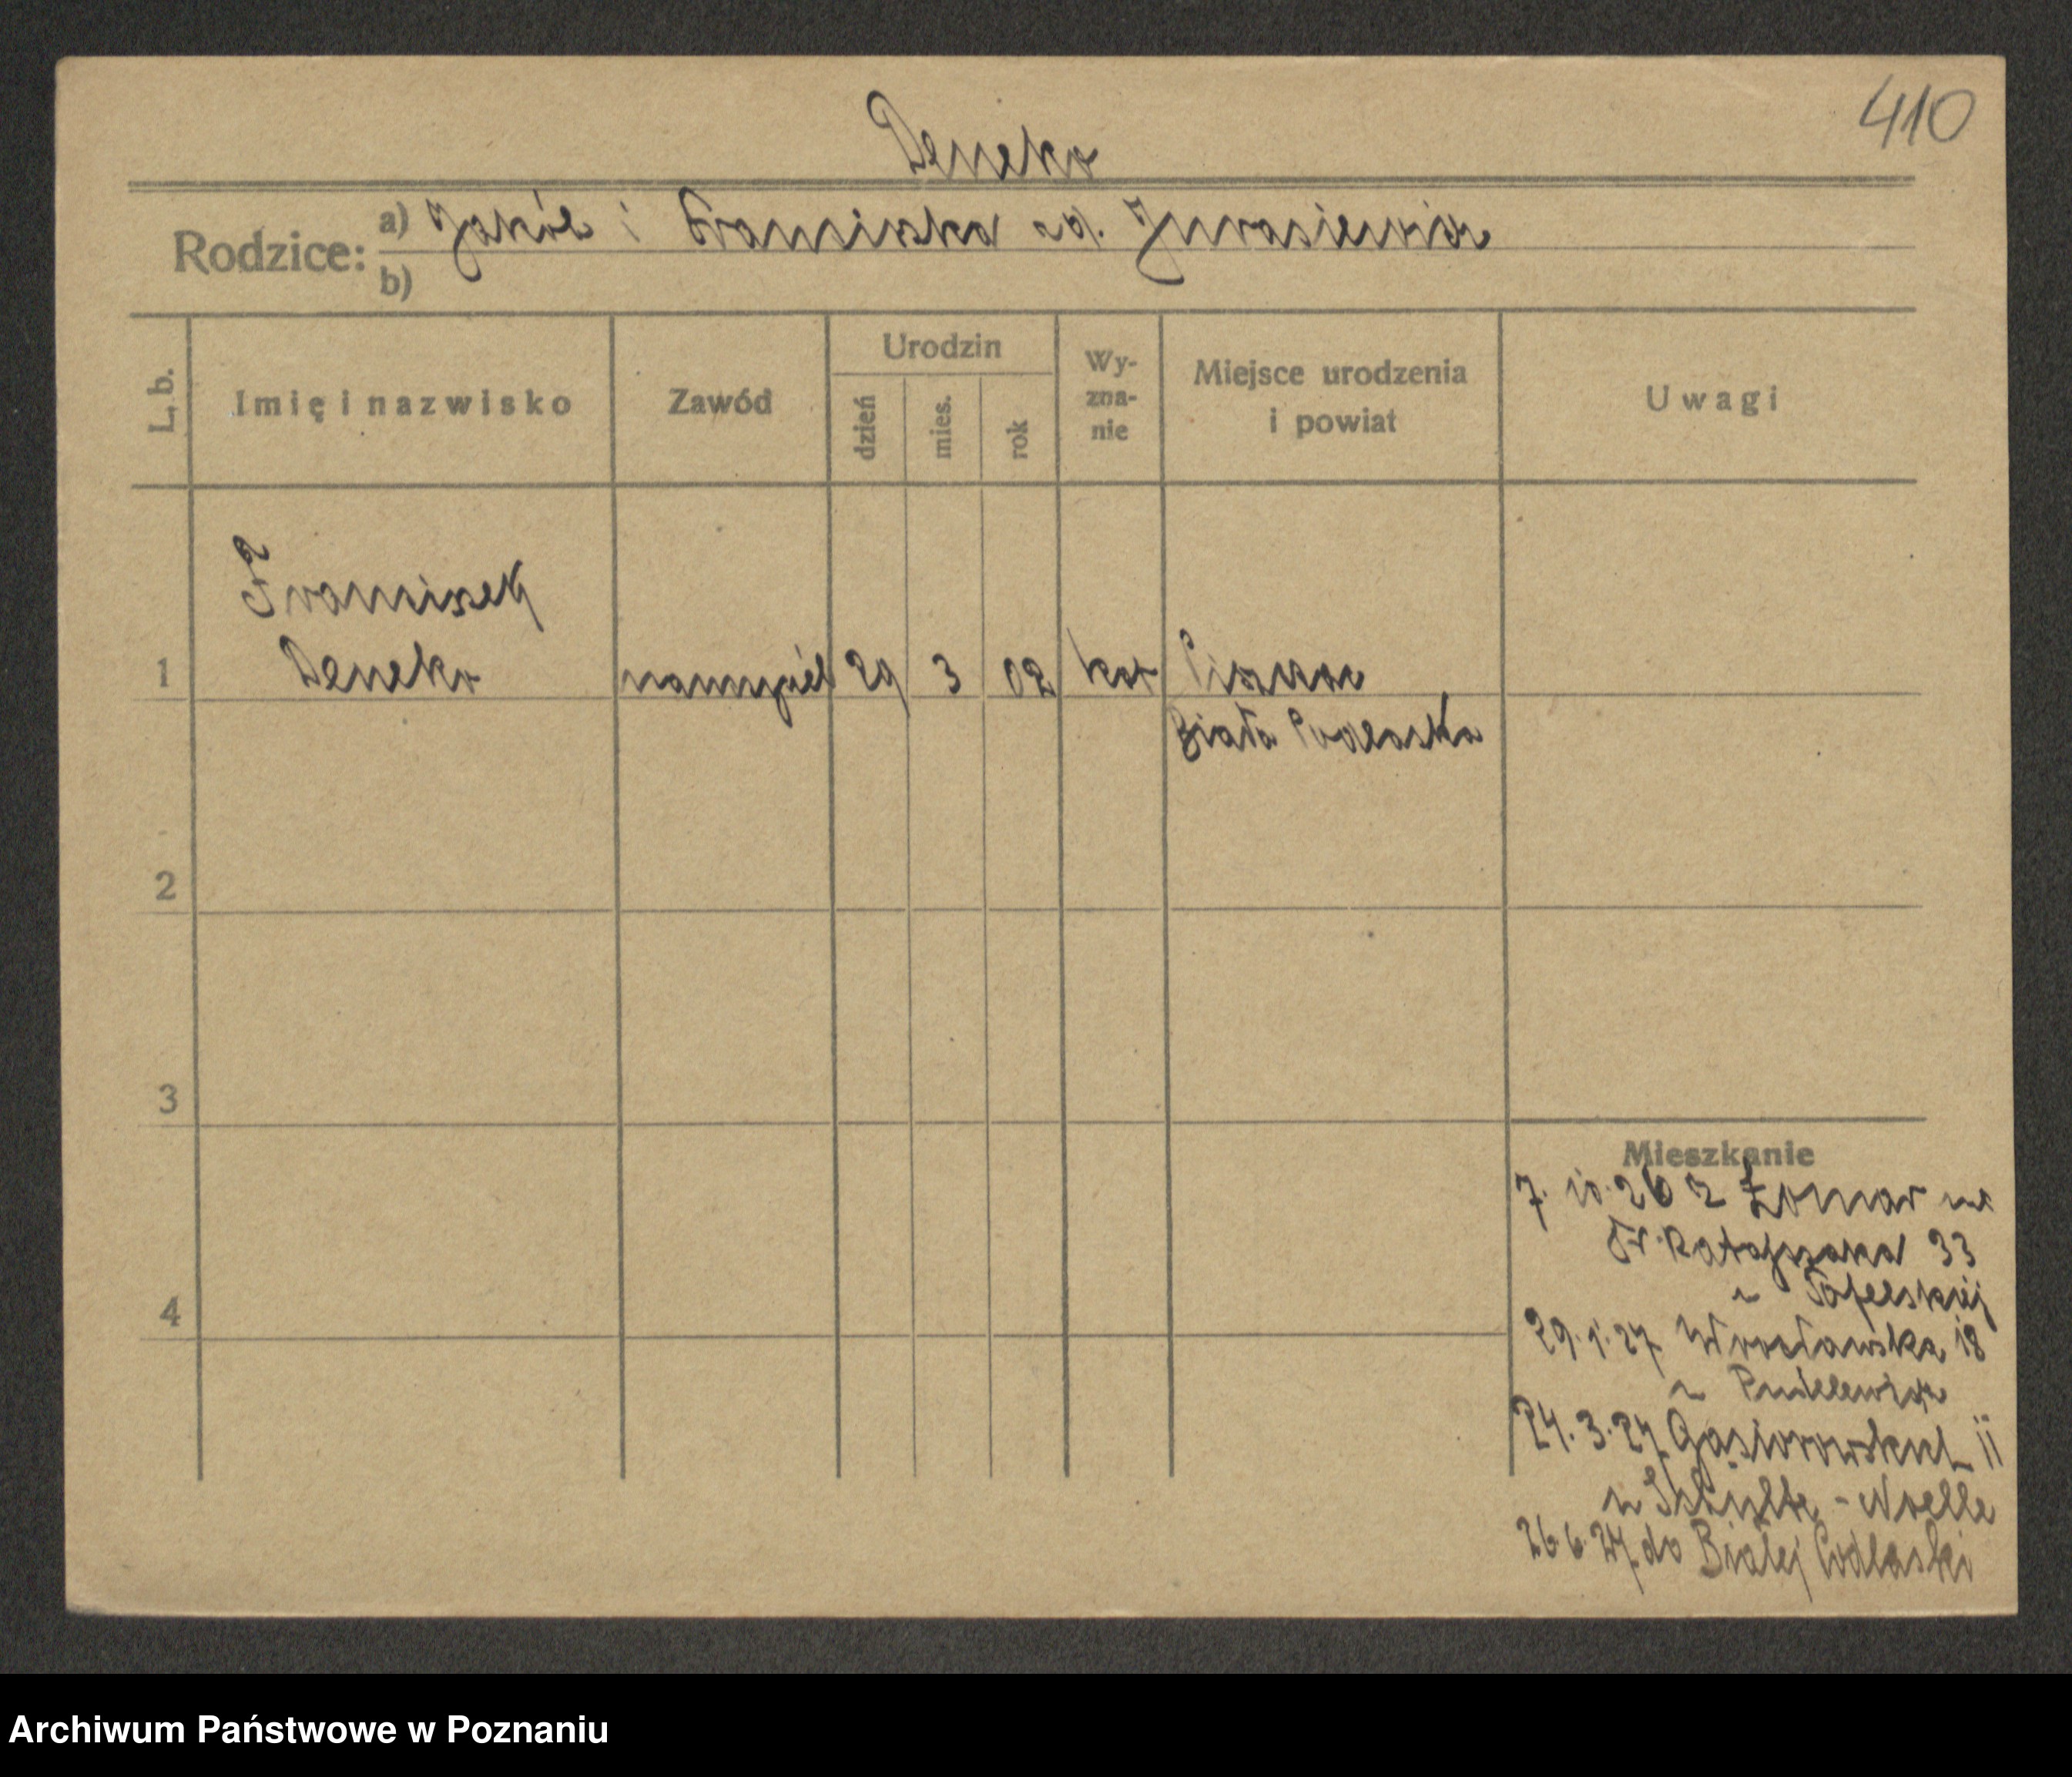 410
Deneko
Rodzice: a) Jakób i Franciszka z d. Jurasiewicz
b)
L. b.
Imię i nazwisko
Zawód
Urodzin
dzień
mies.
rok
Wy-
zna-
nie
Miejsce urodzenia
i powiat
Uwagi
Franciszek
1 Deneko nauczyciel 29 3 02 kat Piszczac
Biała Podlaska
2
3
4
Mieszkanie
7. 10. 26 z na
Fr. Ratajczaka 33
u
29. 1. 27 Wrocławska 18
u
24. 3. 27 Gąsiorowskich 11
u Schulte - Noelle
26 6. 27. do Białej Podlaski
Archiwum Państwowe w Poznaniu